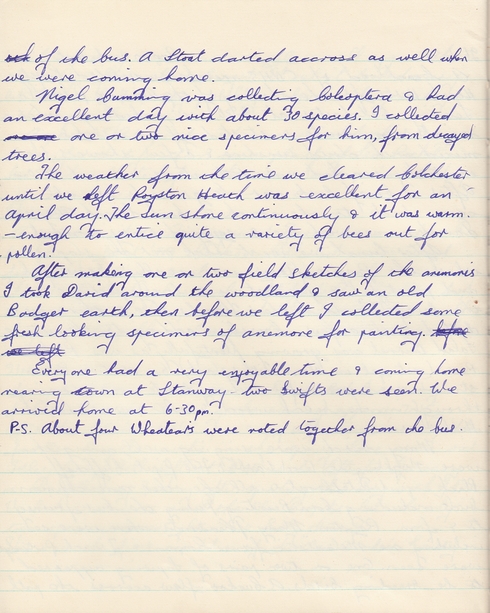 of the bus. A Stoat darted accross as well when
we were coming home.
Nigel Cumming was collecting Coleoptera & had
an excellent day with about 30 species. I collected
one or two nice specimens for him, from decayed
trees.
The weather from the time we cleared Colchester
until we left Royston Heath was excellent for an
April day. The Sun shone continuously & it was warm.
- enough to entice quite a variety of bees out for
pollen.
After making one or two field sketches of the anemonies
I took David around the woodland & saw an old
Badger earth, then before we left I collected some
fresh looking specimens of anemone for painting. before
we left
Everyone had a very enjoyable time & coming home
nearing town at Stanway two Swifts were seen. We
arrived home at 6-30pm.
P.S. About four Wheatears were noted together from the bus.